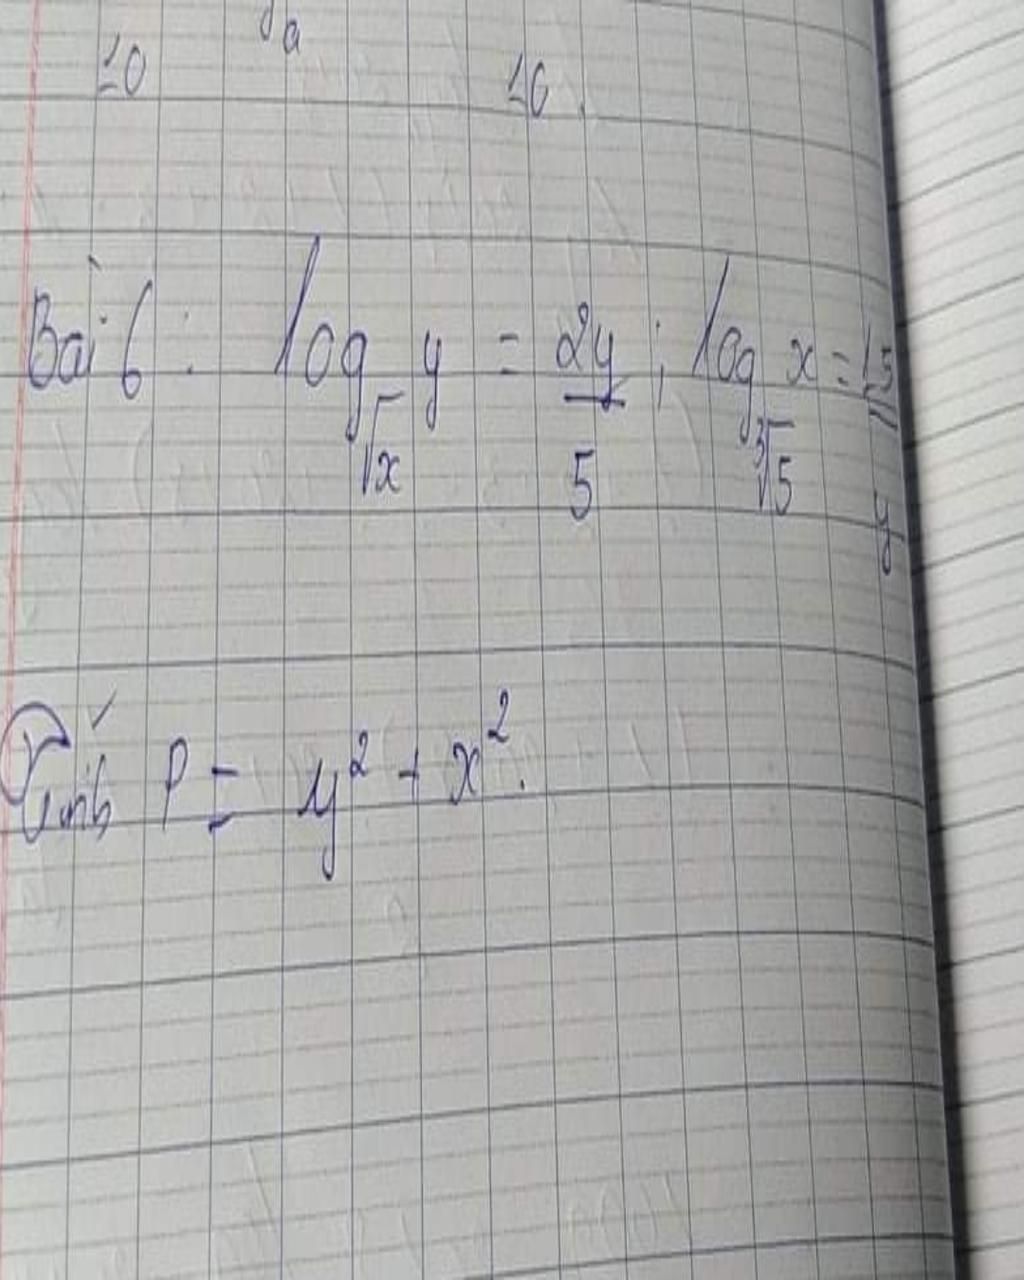 10 a 16
Bài 6: log_{\sqrt{x}} y = \frac{2y}{5}; log_{\sqrt[3]{5}} x = \frac{15}{y}
Tính P = y² + x².